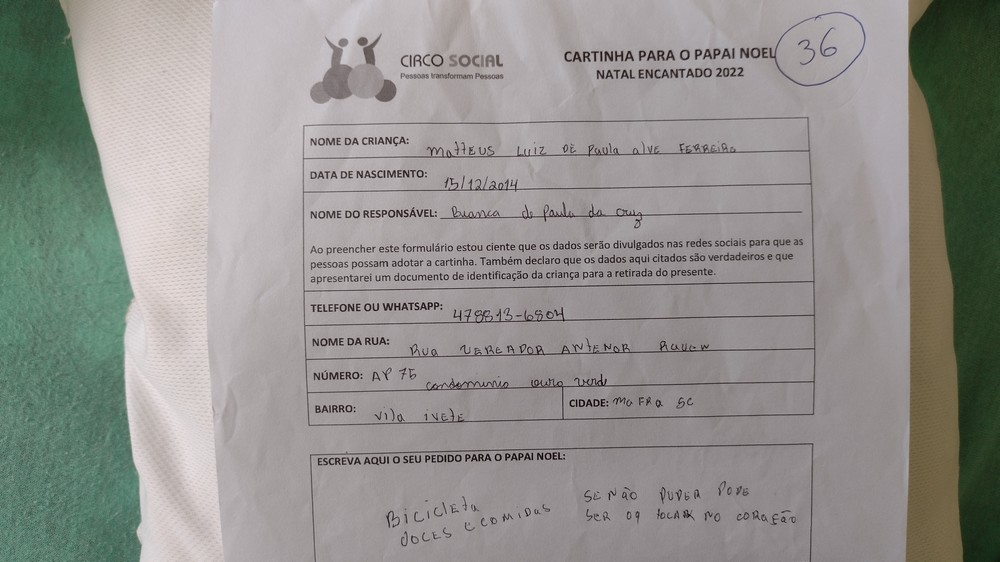 CIRCO SOCIAL
Pessoas transformam Pessoas
CARTINHA PARA O PAPAI NOEL
NATAL ENCANTADO 2022
36
NOME DA CRIANÇA: MattEUS LUIZ DE Paula alve FERREIRA
DATA DE NASCIMENTO: 15/12/2014
NOME DO RESPONSÁVEL: Bianca de Paula da cruz
Ao preencher este formulário estou ciente que os dados serão divulgados nas redes sociais para que as
pessoas possam adotar a cartinha. Também declaro que os dados aqui citados são verdadeiros e que
apresentarei um documento de identificação da criança para a retirada do presente.
TELEFONE OU WHATSAPP: 478813-6804
NOME DA RUA: Rua VEREADOR ANTENOR
NÚMERO: AP 75 condominio ouro verde
BAIRRO: Vila iVEtE
CIDADE: MaFRa SC
ESCREVA AQUI O SEU PEDIDO PARA O PAPAI NOEL:
Bicicleta SE NÃO PUDER PODE
DOCES E COMIDAS SER Oq tOCAR NO CORAÇÃO